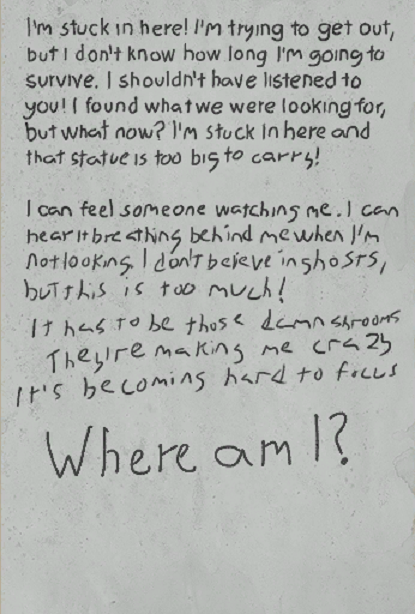 I'm stuck in here! I'm trying to get out,
but I don't know how long I'm going to
survive. I shouldn't have listened to
you! I found what we were looking for,
but what now? I'm stuck in here and
that statue is too big to carry!
I can feel someone watching me. I can
hear it breathing behind me when I'm
not looking. I don't beieve in ghosts,
but this is too much!
It has to be those damn shrooms
They're making me crazy
It's becoming hard to focus
Where am I?